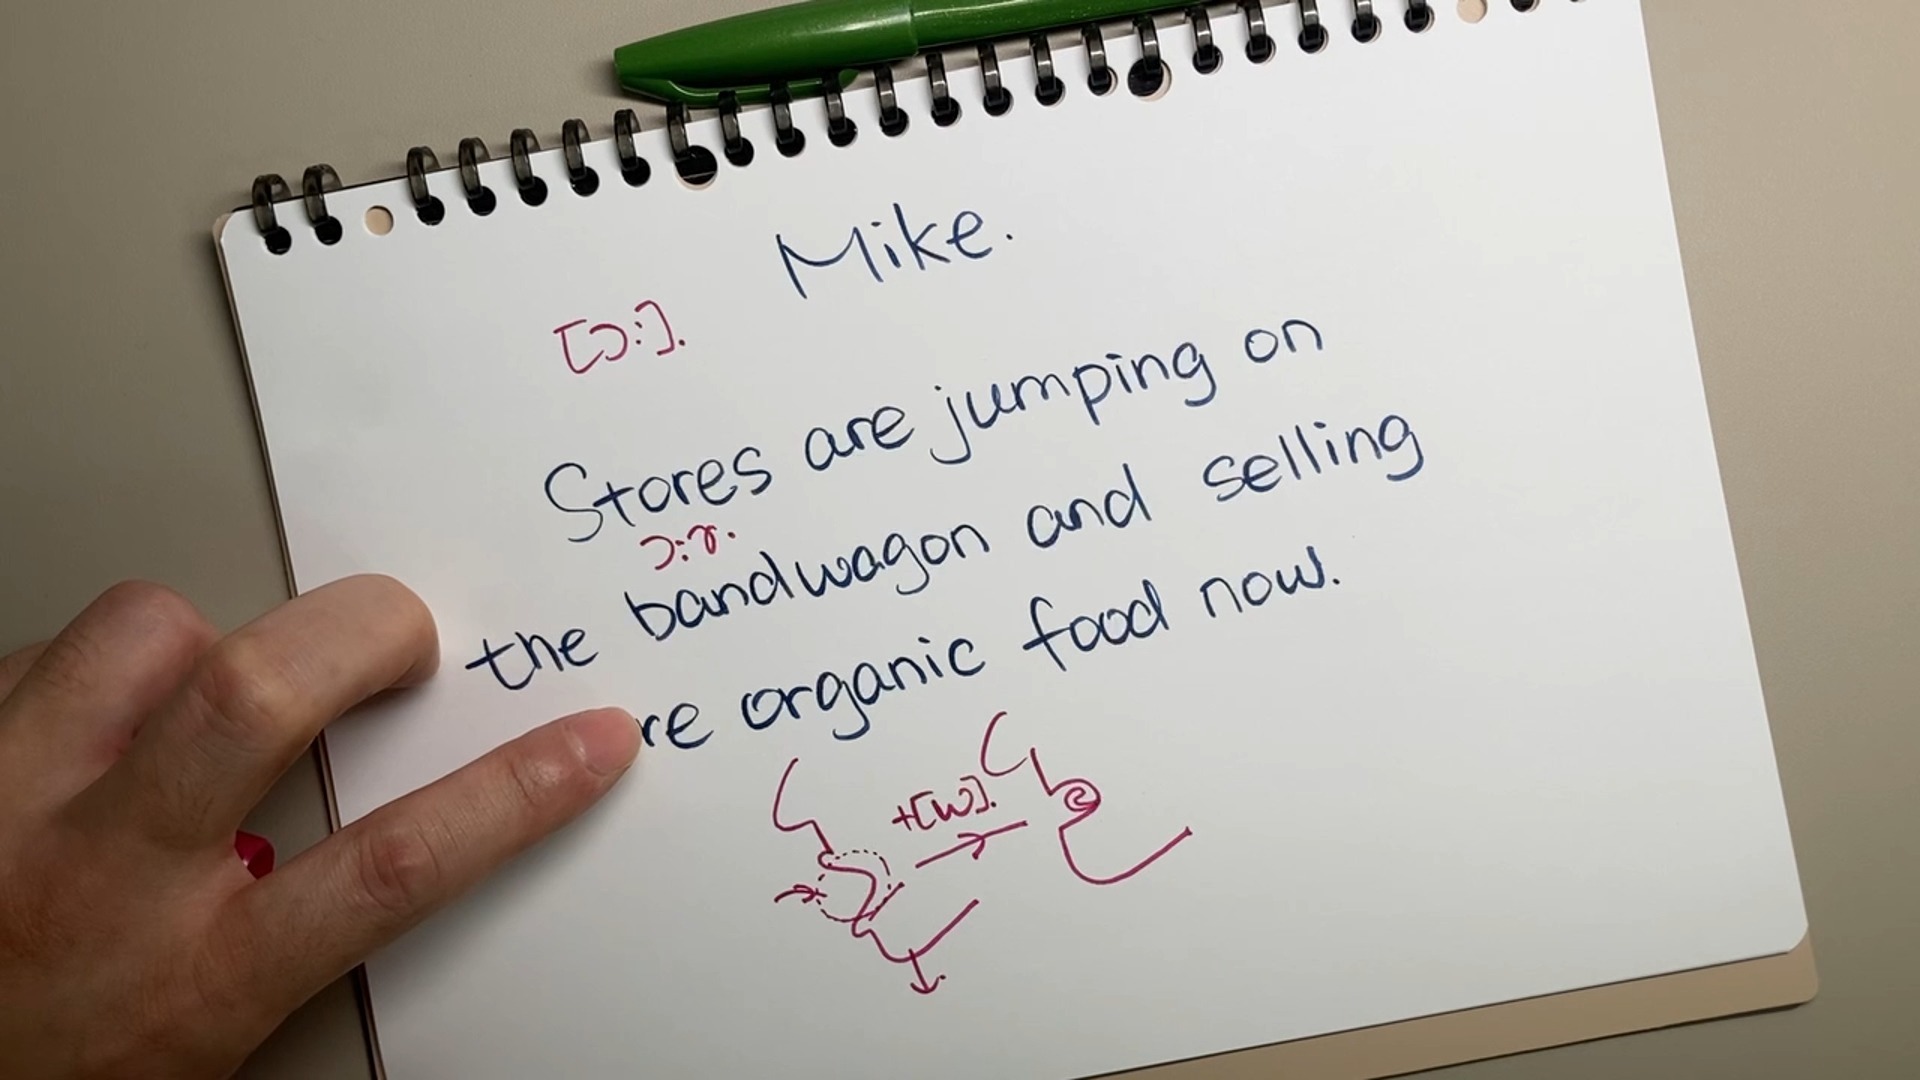 Mike.
[ɔː].
Stores are jumping on
ɔːr.
the bandwagon and selling
re organic food now.
+[w].